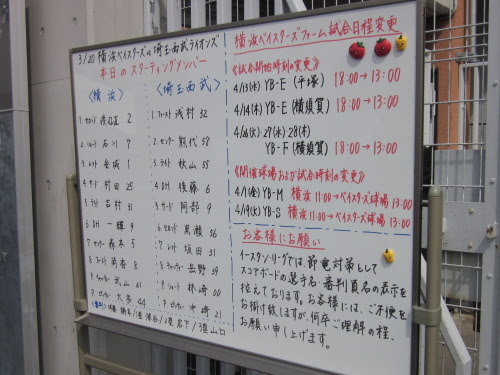 3/20 横浜ベイスターズ vs 埼玉西武ライオンズ
本日のスターティングメンバー
〈横浜〉
1 セカンド 渡辺直 2
2 ショート 石川 7
3 レフト 金城 1
4 サード 村田 25
5 ファースト 吉村 31
6 DH 一輝 9
7 センター 森本 5
8 ライト 筒香 8
9 キャッチャー 武山 61
P ピッチャー 大家 44
〈埼玉西武〉
1 ファースト 浅村 32
2 センター 熊代 58
3 ライト 秋山 55
4 DH 後藤 6
5 サード 阿部 9
6 セカンド 黒瀬 36
7 レフト 坂田 31
8 キャッチャー 星野 39
9 ショート 林崎 00
P ピッチャー 中崎 21
横浜ベイスターズファーム試合日程変更
《試合開始時刻の変更》
4/13(水) YB-E (平塚) 18:00→13:00
4/14(木) YB-E (横須賀) 18:00→13:00
4/26(火) 27(水) 28(木)
YB-F (横須賀) 18:00→13:00
《開催球場および試合時刻の変更》
4/1(金) YB-M 横浜 11:00→ベイスターズ球場 13:00
4/19(火) YB-S 横浜 11:00→ベイスターズ球場 13:00
お客様にお願い
イースタンリーグでは、節電対策として
スコアボードの選手名・審判員名の表示を
控えております。お客様には、ご不便を
お掛け致しますが、何卒ご理解の程、
お願い申し上げます。